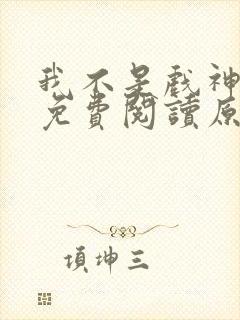 我不是戲神
免費閱讀原
項坤三